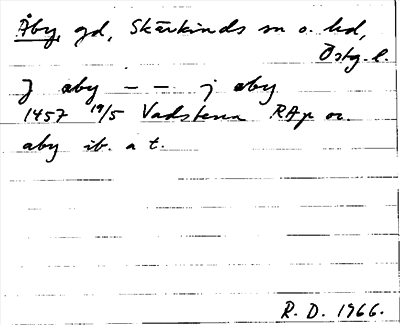 Åby, gd, Skärkinds sn o. hd,
Östg. l.
J aby — — j aby
1457 19/5 Vadstena RAp or.
aby ib. a t.
R. D. 1966.